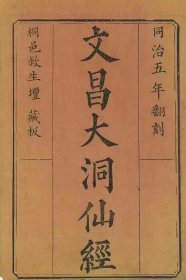 同治五年翻刻
文昌大洞仙經
桐邑救生壇藏板